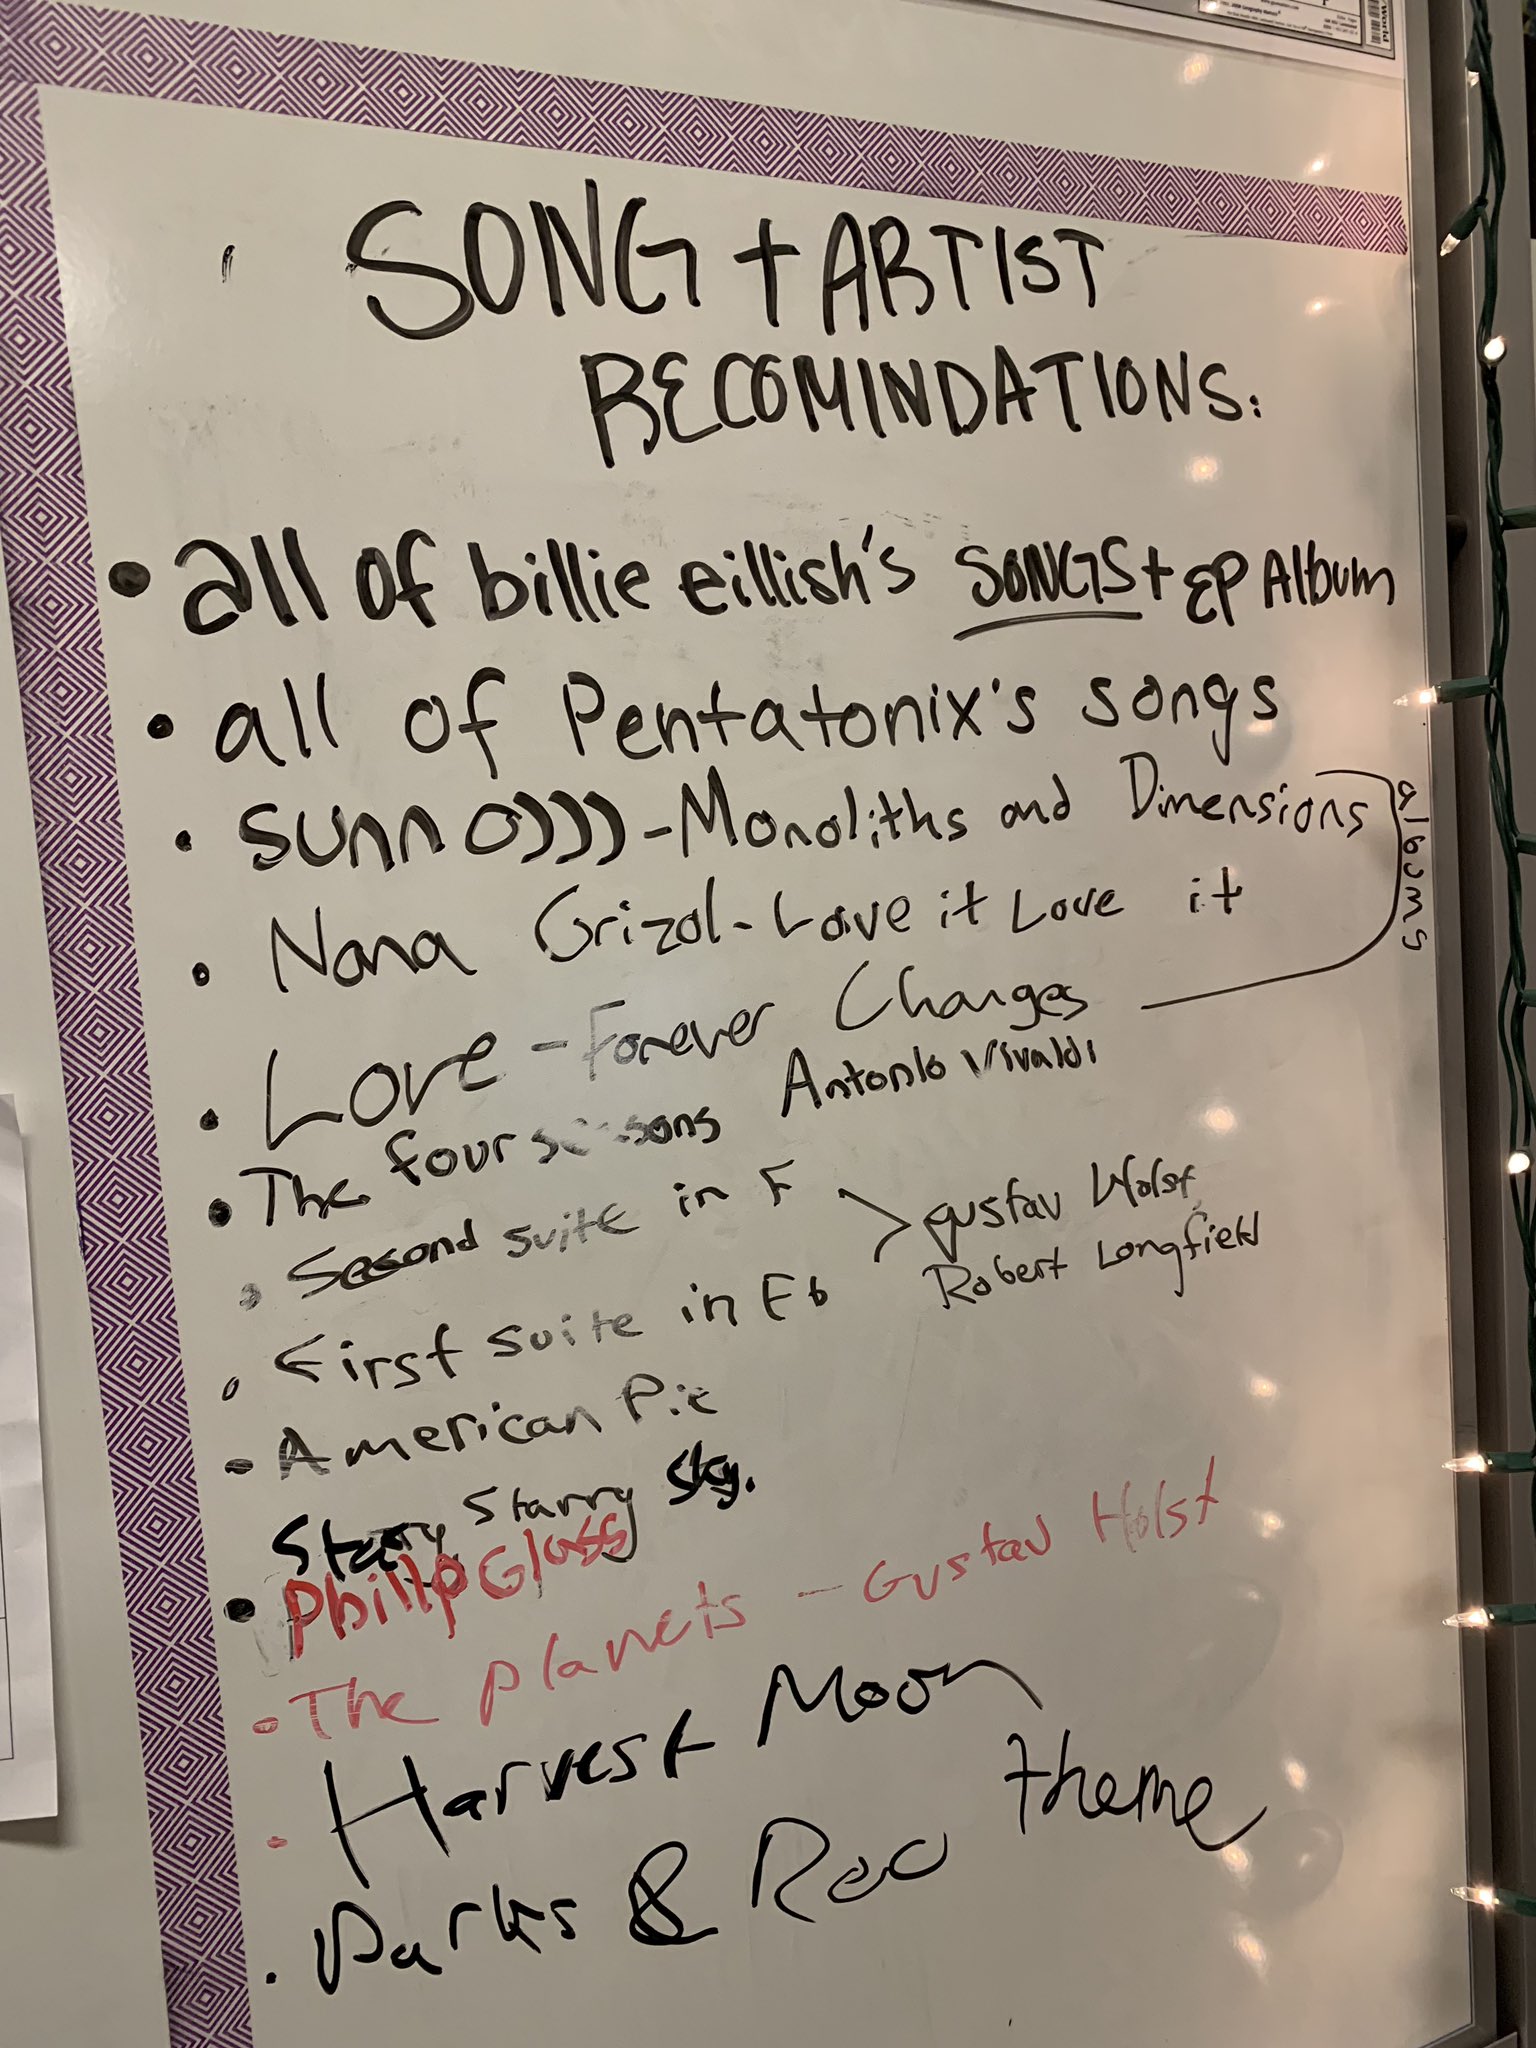 SONG + ARTIST
RECOMINDATIONS:
• all of billie eillish's SONGS + EP Album
• all of Pentatonix's songs
• SUNN O))) - Monoliths and Dimensions
albums
• Nana Grizol - Love it Love it
• Love - Forever Changes
• The four seasons Antonio Vivaldi
• Second suite in F
gustav Holst
Robert Longfield
• First suite in Eb
• American Pie
Starry, Starry Sky.
• Phillp Glass
• The planets - Gustav Holst
• Harvest Moon
• Parks & Rec theme